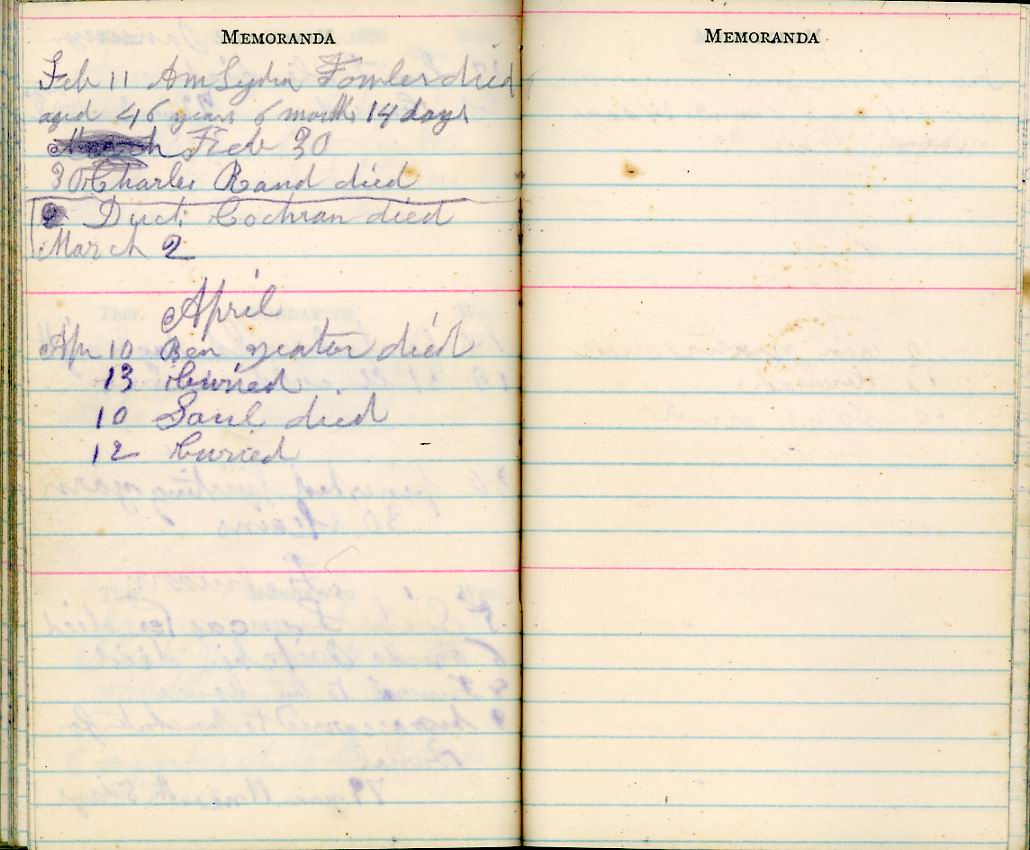 MEMORANDA
Feb 11 Am Lydia Fowler died
aged 46 years 6 month 14 days
Feb 30
30 Charles Rand died
Duct Cochran died
March 2
April
Apr 10 Ben yeaton died
13 buried
10 Saul died
12 buried
MEMORANDA